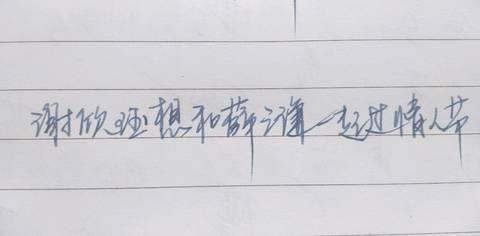 谢欣珏想和薛之谦一起过情人节